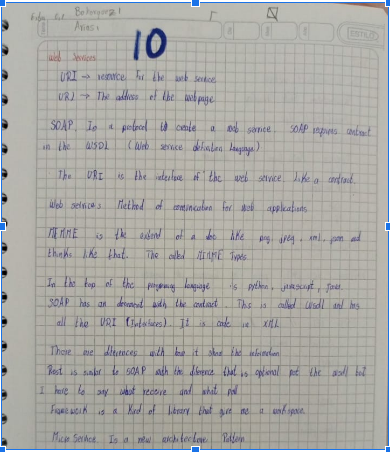 Arias:
10
Web Services
URI → resource for the web service
URL → The address of the webpage
SOAP. Is a protocol to create a web service SOAP requires contract
in the WSDL (Web service definition language)
The URI is the interface of the web service. Like a contract.
Web services Method of comunication for web applications
is the extend of a doc like png, jpeg, xml, json and
thinks like that. The called Types.
In the top of the language is python, javascript, Java.
SOAP has an document with the contract. This is called Wsdl and has
all the URI (Interfaces) It is code in XML
There are diferences with how it the information
Rest is similar to SOAP with the diference that is optional put the wsdl but
I have to say what receive and what
Framework is a Kind of library that give me a workspace.
Micro Service Is a new architecture Pattern